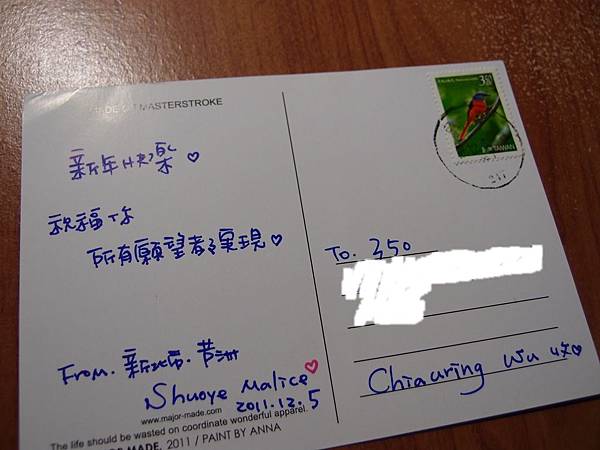 MASTERSTROKE
新年快樂♡
祝福你
所有願望都實現♡
From. 新北市. 芦洲
Shuoye Malice♡
2011.12.5
www.major-made.com
The life should be wasted on coordinate wonderful apparel.
MADE, 2011 / PAINT BY ANNA
350
TAIWAN
To. 350
Chiauring Wu 收♡